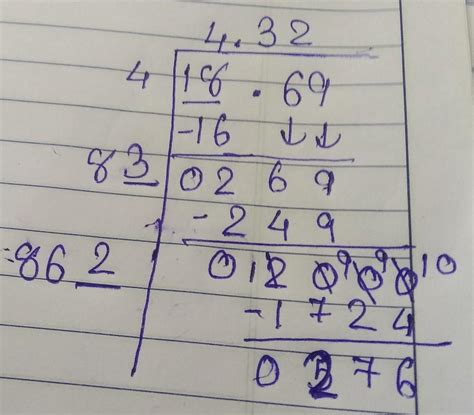 4.32
4 18.69
-16 ↓↓
83 0269
-249
862 012000 9 9 10
-1724
0276